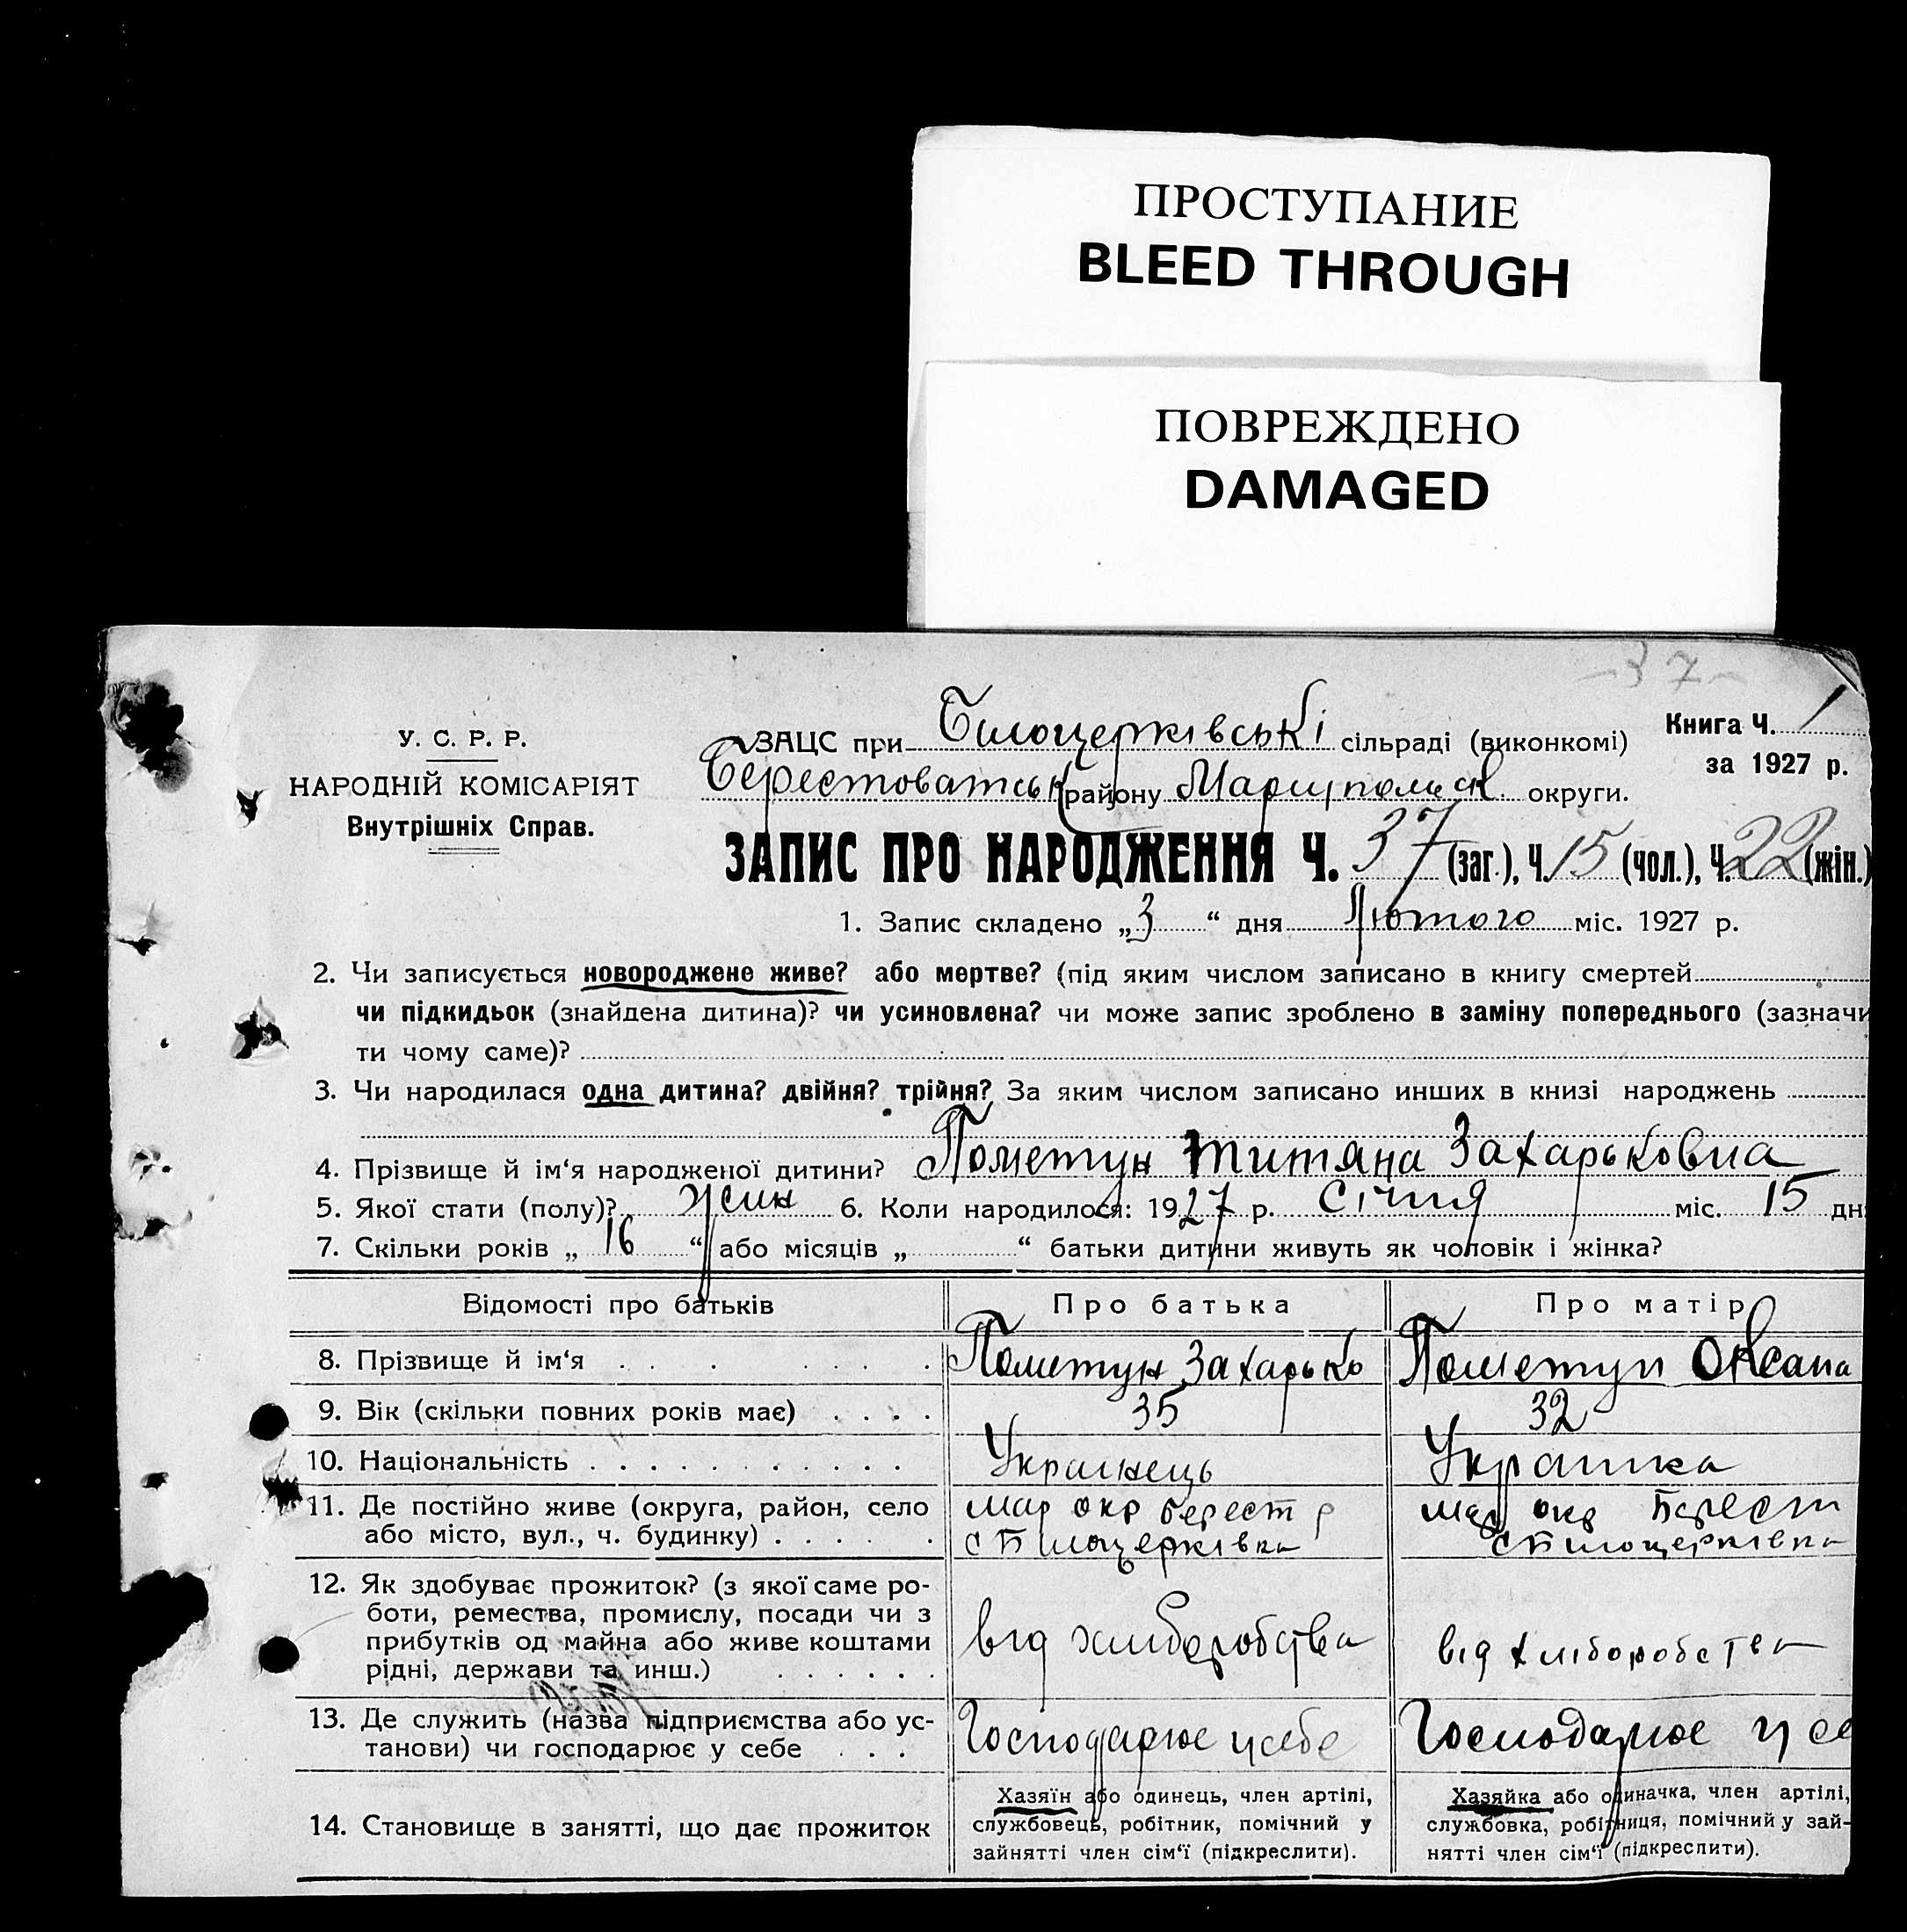 ПРОСТУПАНИЕ
BLEED THROUGH
ПОВРЕЖДЕНО
DAMAGED
37
У. С. Р. Р.
НАРОДНІЙ КОМІСАРІЯТ
Внутрішніх Справ.
ЗАЦС при Білоцерківські сільраді (виконкомі)
Берестоватськ району Маріупольск. округи.
Книга Ч. 1
за 1927 р.
ЗАПИС ПРО НАРОДЖЕННЯ Ч. 37 (заг.), Ч. 15 (чол.), Ч. 22 (жін.)
1. Запис складено „3“ дня Лютого міс. 1927 р.
2. Чи записується новороджене живе? або мертве? (під яким числом записано в книгу смертей
чи підкидьок (знайдена дитина)? чи усиновлена? чи може запис зроблено в заміну попереднього (зазначи
ти чому саме)?
3. Чи народилася одна дитина? двійня? трійня? За яким числом записано инших в книзі народжень
4. Прізвище й ім‘я народженої дитини? Пометун Титяна Захарьковна
5. Якої стати (полу)? жин 6. Коли народилося: 1927 р. Січня міс. 15 дн
7. Скільки років „ 16 “ або місяців „ “ батьки дитини живуть як чоловік і жінка?
Відомості про батьків Про батька Про матір
8. Прізвище й ім‘я . . . . . . . . Пометун Захарько Пометун Оксана
9. Вік (скільки повних років має) . . . . 35 32
10. Національність . . . . . . . . . . . Украинець Украинка
11. Де постійно живе (округа, район, село мар окр берест р мар окр Берест
або місто, вул., ч. будинку) . . . . . . с Білоцерківка с Білоцерківка
12. Як здобуває прожиток? (з якої саме ро-
боти, ремества, промислу, посади чи з
прибутків од майна або живе коштами від хліборобства від хліборобства
рідні, держави та инш.) . . . . . .
13. Де служить (назва підприємства або ус- Господарює у себе Господарює у се
танови) чи господарює у себе . . .
14. Становище в занятті, що дає прожиток
Хазяїн або одинець, член артілі,
службовець, робітник, помічний у
зайнятті член сім‘ї (підкреслити).
Хазяйка або одиначка, член артілі,
службовка, робітниця, помічний у зай-
нятті член сім‘ї (підкреслити).